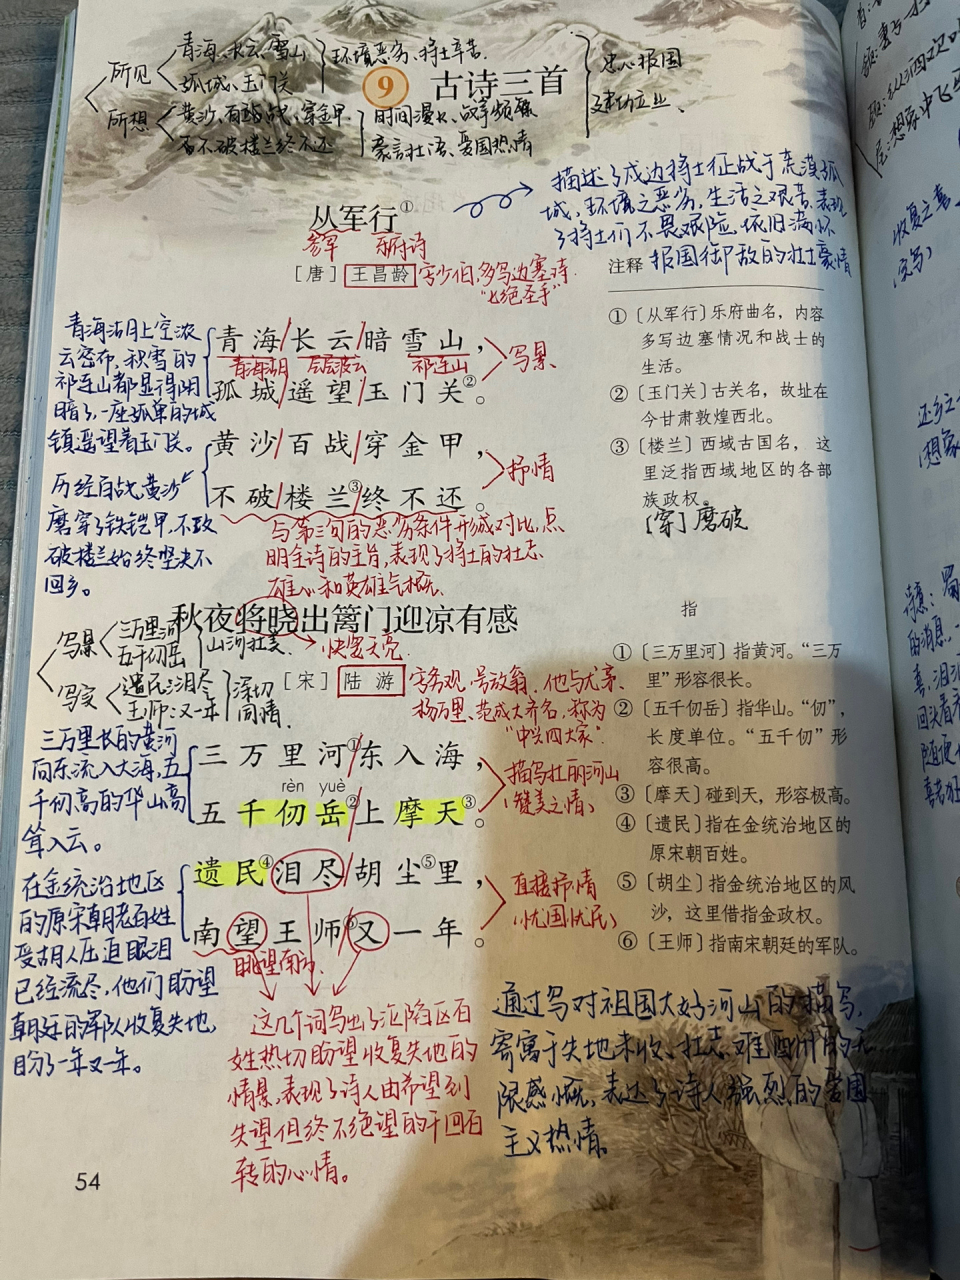 所见
青海、长云、雪山
孤城、玉门关
环境恶劣、将士辛苦
所想
黄沙、百战、穿金甲
不破楼兰终不还
时间漫长、战事频繁
豪言壮语、爱国热情
忠心报国
建功立业、
9 古诗三首
描述了戍边将士征战于荒漠孤
城,环境之恶劣,生活之艰苦,表现
了将士们不畏艰险,依旧满怀
报国御敌的壮士豪情
从军行①
参军 乐府诗
[唐] 王昌龄 字少伯,多写边塞诗.
“七绝圣手”
青海湖上空浓
云密布,积雪的
祁连山都显得阴
暗了,一座孤单的城
镇遥望着玉门关。
青海/长云/暗雪山,
青海湖 层层浓云 祁连山
孤城/遥望/玉门关②。
写景
历经百战,黄沙
磨穿了铁铠甲,不攻
破楼兰始终坚决不
回乡。
黄沙/百战/穿金甲,
不破/楼兰③/终不还。
抒情
与第三句的恶劣条件形成对比,点
明全诗的主旨,表现了将士的壮志
雄心和英雄气概.
注释
①〔从军行〕乐府曲名,内容
多写边塞情况和战士的
生活。
②〔玉门关〕古关名,故址在
今甘肃敦煌西北。
③〔楼兰〕西域古国名,这
里泛指西域地区的各部
族政权。
[穿]磨破
秋夜将晓出篱门迎凉有感
快要天亮.
写景
三万里河
五千仞岳
山河壮美
写实
遗民:泪尽
王师:又一年
深切
同情、
[宋] 陆游 字务观,号放翁.他与尤袤、
杨万里、范成大齐名,称为
“中兴四大家”.
三万里长的黄河
向东流入大海,五
千仞高的华山高
耸入云。
三万里河①/东入海,
rèn yuè
五千仞岳②/上摩天③。
描写壮丽河山
(赞美之情)
在金统治地区
的原宋朝老百姓
受胡人压迫眼泪
已经流尽,他们盼望
朝廷的军队收复失地,
盼了一年又一年。
遗民④泪尽/胡尘⑤里,
南望王师⑥/又一年。
眺望南方.
直接抒情
(忧国忧民)
这几个词写出了沦陷区百
姓热切盼望收复失地的
情景,表现了诗人由希望到
失望但终不绝望的千回百
转的心情。
指
①〔三万里河〕指黄河。“三万
里”形容很长。
②〔五千仞岳〕指华山。“仞”,
长度单位。“五千仞”形
容很高。
③〔摩天〕碰到天,形容极高。
④〔遗民〕指在金统治地区的
原宋朝百姓。
⑤〔胡尘〕指金统治地区的风
沙,这里借指金政权。
⑥〔王师〕指南宋朝廷的军队。
通过写对祖国大好河山的描写,
寄寓于失地未收、壮志难酬的无
限感慨,表达了诗人强烈的爱国
主义热情。
54
收复之喜
(实写)
回头看